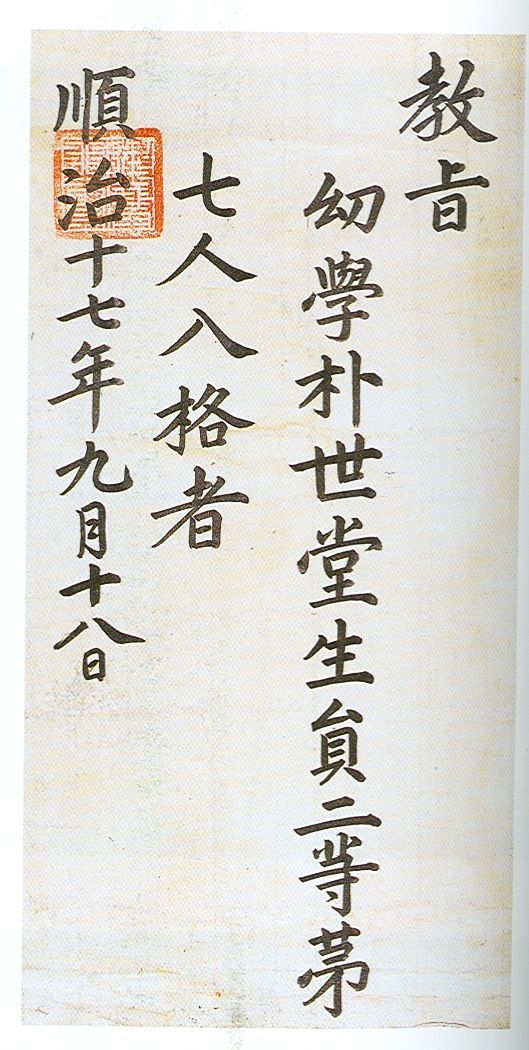 教旨
幼學朴世堂生員二等第
七人入格者
順治十七年九月十八日